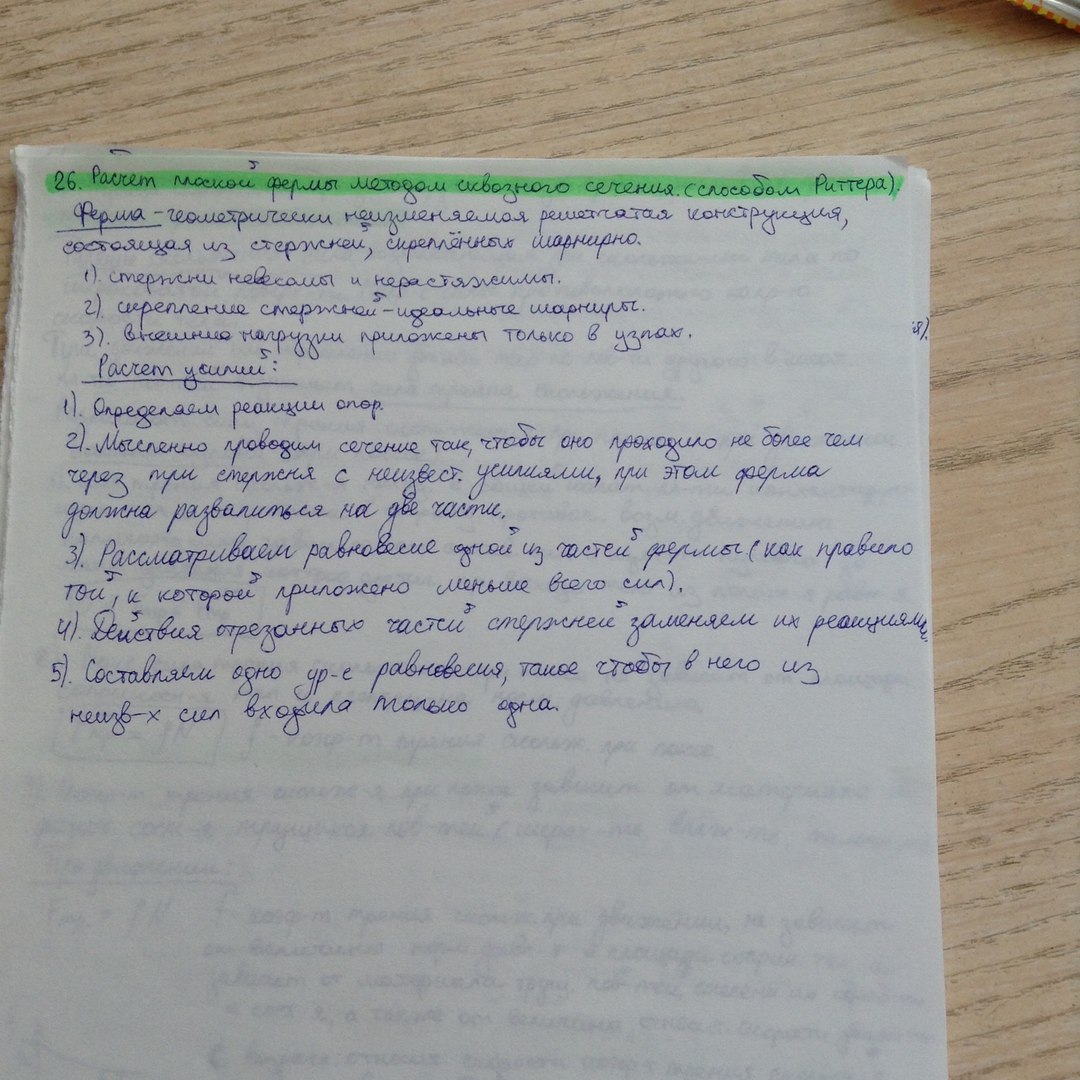 26. Расчет плоской фермы методом сквозного сечения. (способом Риттера).
Ферма - геометрически неизменяемая решетчатая конструкция,
состоящая из стержней, скреплённых шарнирно.
1). стержни невесомы и нерастяжимы.
2). скрепление стержней - идеальные шарниры.
3). внешние нагрузки приложены только в узлах.
Расчет усилий:
1). Определяем реакции опор.
2). Мысленно проводим сечение так, чтобы оно проходило не более чем
через три стержня с неизвест. усилиями, при этом ферма
должна развалиться на две части.
3). Рассматриваем равновесие одной из частей фермы (как правило
той, к которой приложено меньше всего сил).
4). Действия отрезанных частей стержней заменяем их реакциями.
5). Составляем одно ур-е равновесия, такое чтобы в него из
неизв-х сил входила только одна.